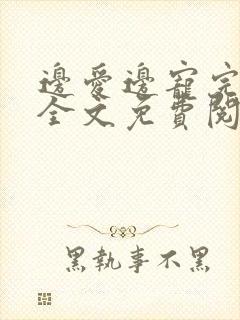 邊愛邊寵完
全文免費閱
黑執事不黑